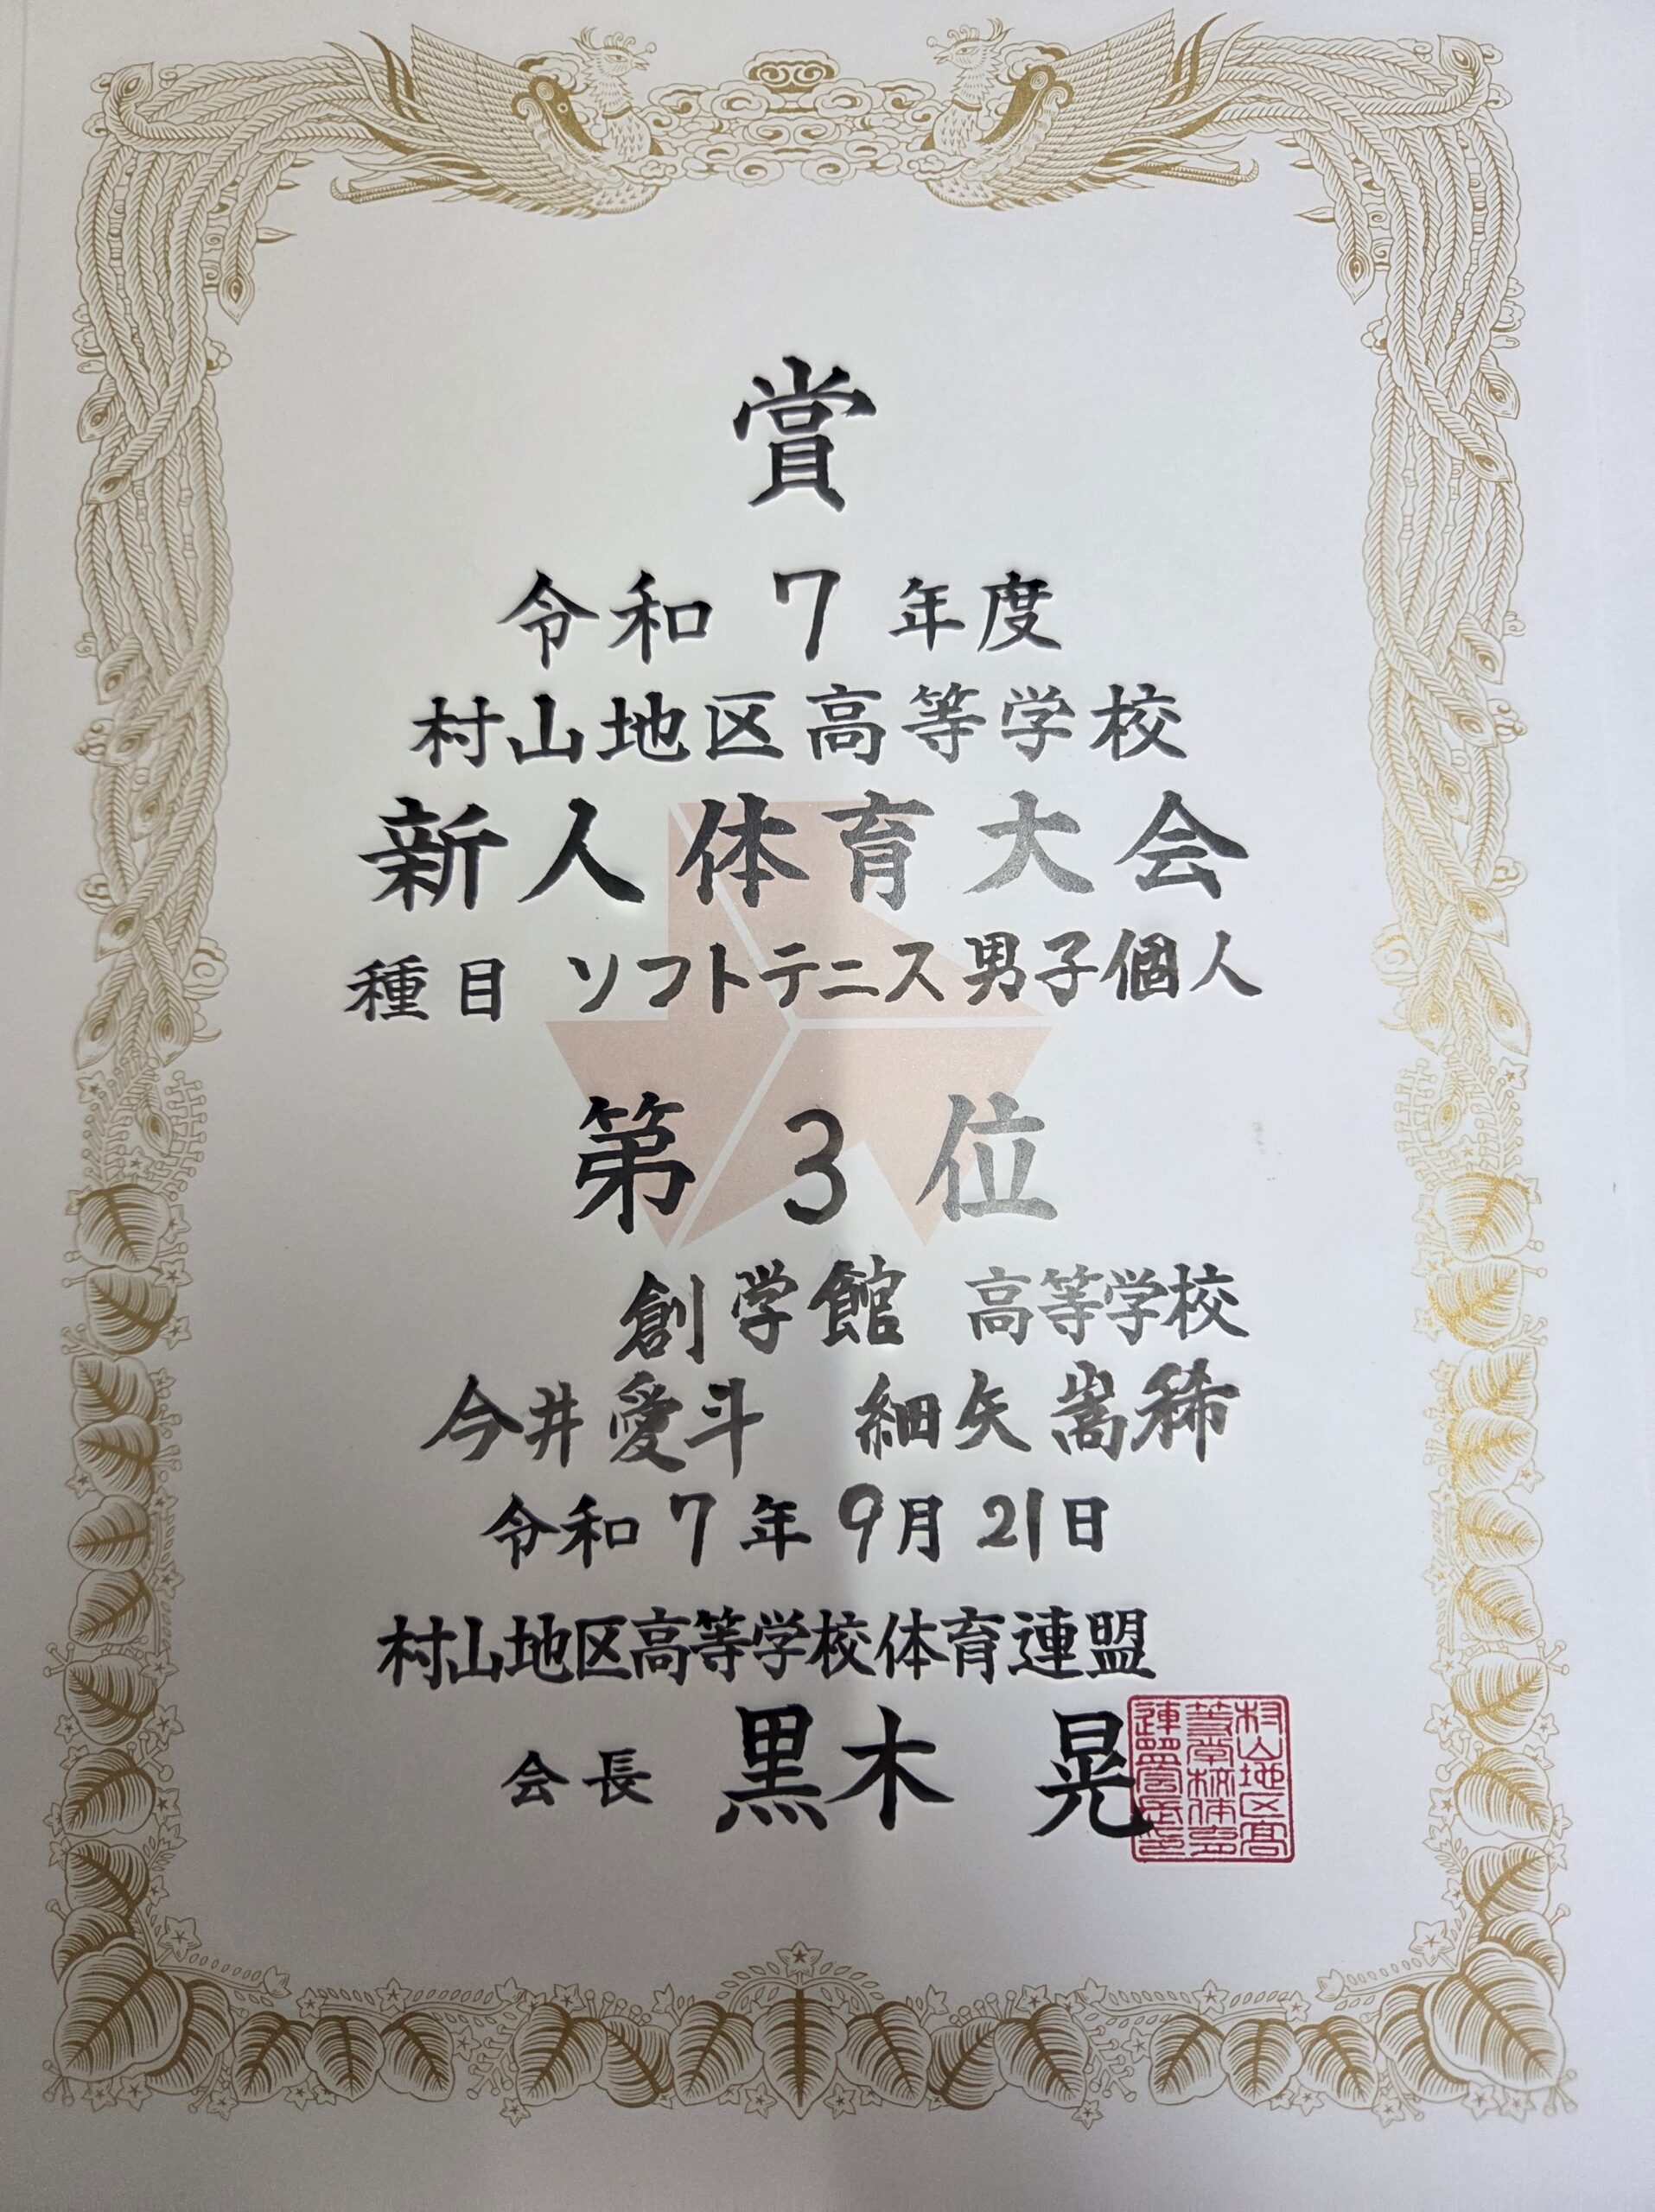 賞
令和 7 年度
村山地区高等学校
新人体育大会
種目 ソフトテニス男子個人
第 3 位
創学館 高等学校
今井愛斗 細矢嵩稀
令和 7 年 9月 21日
村山地区高等学校体育連盟
会長 黒木 晃
村山地区高
等学校体育
連盟会長印